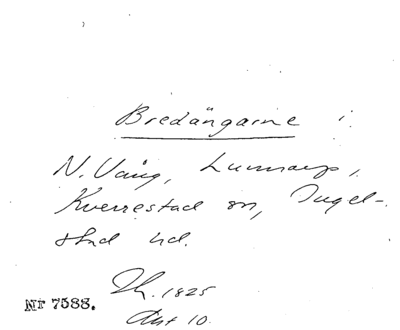 Bredängarne i
N. Vång, Lunnarp,
Kverrestad sn, Ingel-
stad hd.
Th. 1825
Akt 10.
Nr 7588.